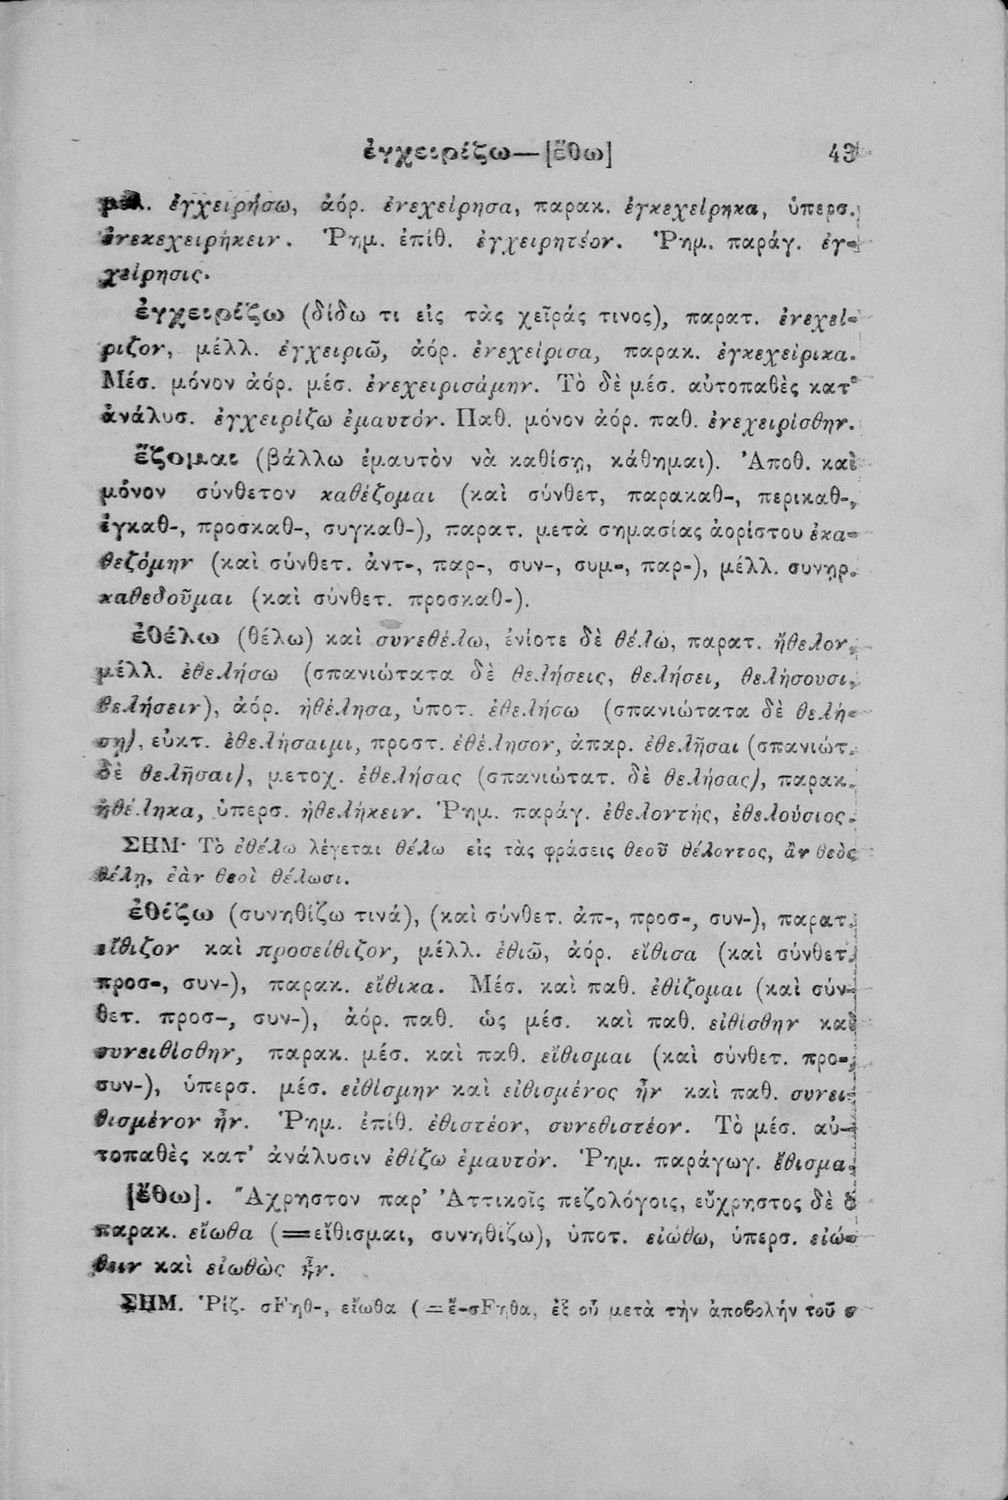 ἐγχειρίζω—[ἔθω] 43
μέλ. ἐγχειρήσω, ἀόρ. ἐνεχείρησα, παρακ. ἐγκεχείρηκα, ὑπερσ.
ἐνεκεχειρήκειν. Ῥημ. ἐπίθ. ἐγχειρητέον. Ῥημ. παράγ. ἐγ-
χείρησις.
ἐγχειρίζω (δίδω τι εἰς τὰς χεῖράς τινος), παρατ. ἐνεχεί-
ριζον, μέλλ. ἐγχειριῶ, ἀόρ. ἐνεχείρισα, παρακ. ἐγκεχείρικα.
Μέσ. μόνον ἀόρ. μέσ. ἐνεχειρισάμην. Τὸ δὲ μέσ. αὐτοπαθὲς κατ'
ἀνάλυσ. ἐγχειρίζω ἐμαυτόν. Παθ. μόνον ἀόρ. παθ. ἐνεχειρίσθην.
ἕζομαι (βάλλω ἐμαυτὸν νὰ καθίσῃ, κάθημαι). Ἀποθ. καὶ
μόνον σύνθετον καθέζομαι (καὶ σύνθετ, παρακαθ-, περικαθ-,
ἐγκαθ-, προσκαθ-, συγκαθ-), παρατ. μετὰ σημασίας ἀορίστου ἐκα-
θεζόμην (καὶ σύνθετ. ἀντ-, παρ-, συν-, συμ-, παρ-), μέλλ. συνῃρ.
καθεδοῦμαι (καὶ σύνθετ. προσκαθ-).
ἐθέλω (θέλω) καὶ συνεθέλω, ἐνίοτε δὲ θέλω, παρατ. ἤθελον,
μέλλ. ἐθελήσω (σπανιώτατα δὲ θελήσεις, θελήσει, θελήσουσι,
θελήσειν), ἀόρ. ἠθέλησα, ὑποτ. ἐθελήσω (σπανιώτατα δὲ θελή-
σῃ), εὐκτ. ἐθελήσαιμι, προστ. ἐθέλησον, ἀπαρ. ἐθελῆσαι (σπανιώτ.
δὲ θελῆσαι), μετοχ. ἐθελήσας (σπανιώτατ. δὲ θελήσας), παρακ.
ἠθέληκα, ὑπερσ. ἠθελήκειν. Ῥημ. παράγ. ἐθελοντής, ἐθελούσιος.
ΣΗΜ· Τὸ ἐθέλω λέγεται θέλω εἰς τὰς φράσεις θεοῦ θέλοντος, ἂν θεὸς
θέλῃ, ἐὰν θεοὶ θέλωσι.
ἐθίζω (συνηθίζω τινά), (καὶ σύνθετ. ἀπ-, προσ-, συν-), παρατ.
εἴθιζον καὶ προσείθιζον, μέλλ. ἐθιῶ, ἀόρ. εἴθισα (καὶ σύνθετ.
προσ-, συν-), παρακ. εἴθικα. Μέσ. καὶ παθ. ἐθίζομαι (καὶ σύν-
θετ. προσ-, συν-), ἀόρ. παθ. ὡς μέσ. καὶ παθ. εἰθίσθην καὶ
συνειθίσθην, παρακ. μέσ. καὶ παθ. εἴθισμαι (καὶ σύνθετ. προ-,
συν-), ὑπερσ. μέσ. εἰθίσμην καὶ εἰθισμένος ἦν καὶ παθ. συνει-
θισμένον ἦν. Ῥημ. ἐπίθ. ἐθιστέον, συνεθιστέον. Τὸ μέσ. αὐ-
τοπαθὲς κατ' ἀνάλυσιν ἐθίζω ἐμαυτόν. Ῥημ. παράγωγ. ἔθισμα.
[ἔθω]. Ἄχρηστον παρ' Ἀττικοῖς πεζολόγοις, εὔχρηστος δὲ ὁ
παρακ. εἴωθα (=εἴθισμαι, συνηθίζω), ὑποτ. εἰώθω, ὑπερσ. εἰώ-
θειν καὶ εἰωθὼς ἦν.
ΣΗΜ. Ῥίζ. σFηθ-, εἴωθα (=ἔ-σFηθα, ἐξ οὗ μετὰ τὴν ἀποβολήν τοῦ σ